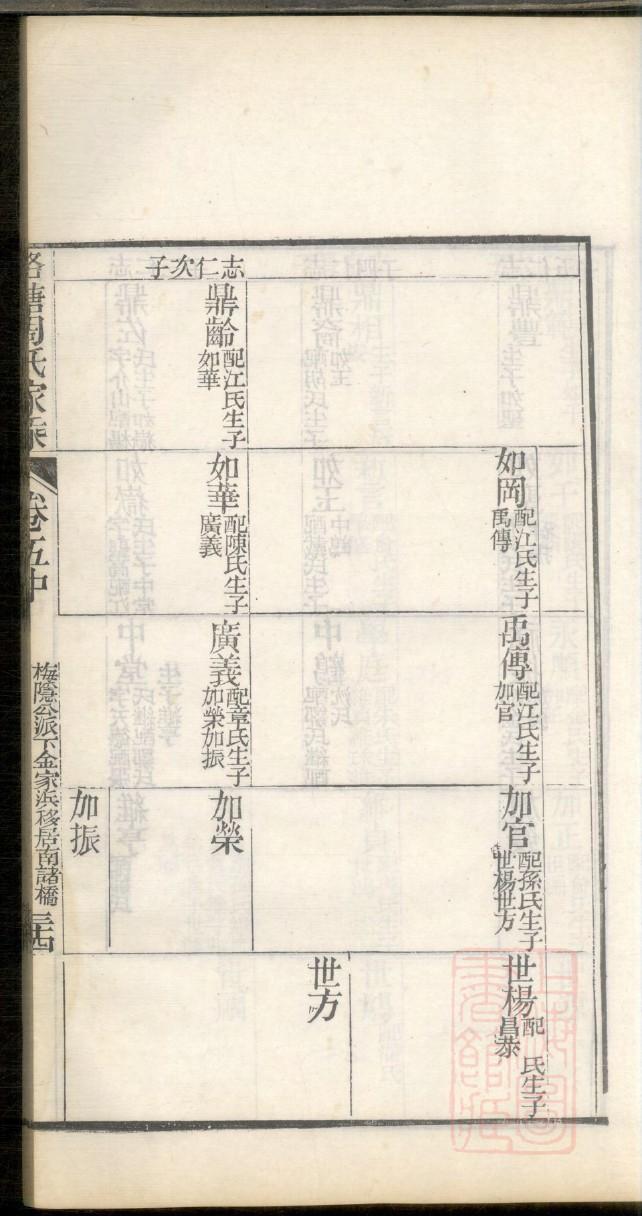 如岡配江氏生子
禹傳
禹傳配江氏生子
加官
加官配孫氏生子
世楊世方
世楊配　氏生子
昌泰
世方
志仁次子
鼎齡配江氏生子
如華
如華配陳氏生子
廣義
廣義配章氏生子
加榮加振
加榮
加振
塘周氏家乘
卷五中
梅隱公派下金家浜移居南諸橋
三十四